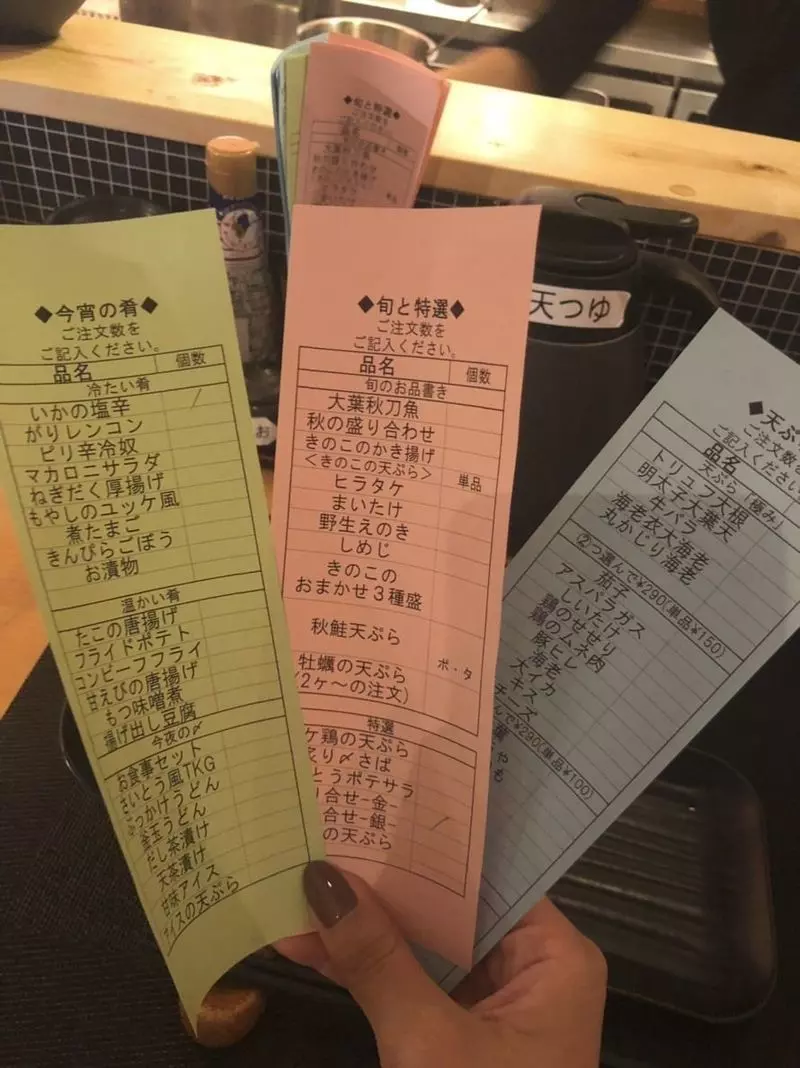 ◆旬と特選◆
◆今宵の肴◆
ご注文数を
ご記入ください。
品名 個数
冷たい肴
いかの塩辛
がりレンコン
ピリ辛冷奴
マカロニサラダ
ねぎだく厚揚げ
もやしのユッケ風
煮たまご
きんぴらごぼう
お漬物
温かい肴
たこの唐揚げ
フライドポテト
コンビーフフライ
甘えびの唐揚げ
もつ味噌煮
揚げ出し豆腐
今夜の〆
お食事セット
さいとう風TKG
ぶっかけうどん
釜玉うどん
だし茶漬け
天茶漬け
甘味アイス
アイスの天ぷら
◆旬と特選◆
ご注文数を
ご記入ください。
品名 個数
旬のお品書き
大葉秋刀魚
秋の盛り合わせ
きのこのかき揚げ
<きのこの天ぷら> 単品
ヒラタケ
まいたけ
野生えのき
しめじ
きのこの
おまかせ３種盛
秋鮭天ぷら
牡蠣の天ぷら ポ・タ
(2ヶ～の注文)
特選
ケ鶏の天ぷら
炙り〆さば
とうポテサラ
り合せ-金-
合せ-銀-
の天ぷら
天つゆ
お
◆天ぷ
ご注文数を
ご記入ください
品名
天ぷら「極み」
トリュフ大根
明太子大葉天
牛バラ
海老衣大海老
丸かじり海老
②つ選んで¥290(単品¥150)
茄子
アスパラガス
しいたけ
鶏のせせり
鶏のムネ肉
豚ヒレ
海老
大イカ
キス
チーズ
んで¥290(単品¥100)
葉
や
も